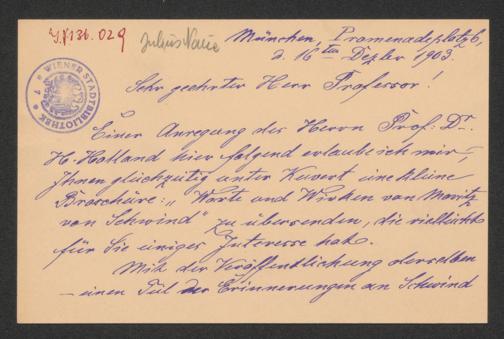 I.N. 136.029
Julius Naue
München, Promenadeplatz 6,
d. 16ten Dezbr 1903.
WIENER STADTBIBLIOTHEK
Sehr geehrter Herr Professor!
Einer Anregung des Herrn Prof. Dr.
H. Holland hier folgend erlaube ich mir,
Ihnen gleichzeitig unter Kuvert eine kleine
Broschüre: „Worte und Wirken von Moritz
von Schwind" zu übersenden, die vielleicht
für Sie einiges Interesse hat.
Mit der Veröffentlichung derselben
– einen Teil der Erinnerungen an Schwind